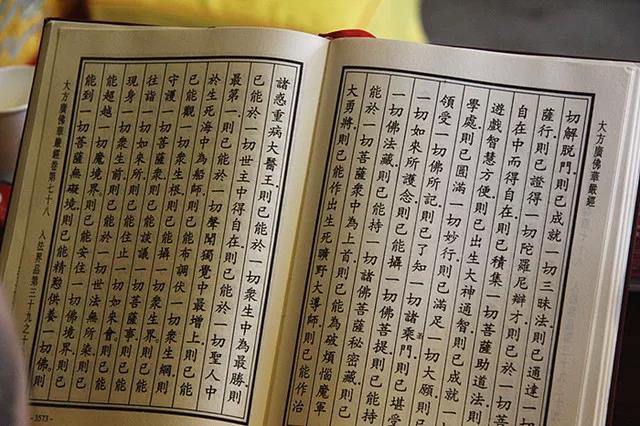 大方廣佛華嚴經
切解脫門則已成就一切三昧法則已通達一
薩行則已證得一切陀羅尼辯才則已於一切
自在中而得自在則已積集一切菩薩助道法則
遊戲智慧方便則已出生大神通智則已成就一
學處則已圓滿一切妙行則已滿足一切大願則
領受一切佛所記則已了知一切諸乘門則已堪受
一切如來所護念則已能攝一切佛菩提則已能持
一切佛法藏則已能持一切諸佛菩薩秘密藏則已
能於一切菩薩衆中為上首則已能為破煩惱魔軍
大勇將則已能作出生死曠野大導師則已能作治
諸惑重病大醫王則已能於一切衆生中為最勝則
已能於一切世主中得自在則已能於一切聖人中
最第一則已能於一切聲聞獨覺中最增上則已能
於生死海中為船師則已能布調伏一切衆生網則
已能觀一切衆生根則已能攝一切衆生界則已能
守護一切菩薩衆則已能談議一切菩薩事則已能
往詣一切如來所則已能住止一切如來會則已能
現身一切衆生前則已能於一切世法無所染則已
能超越一切魔境界則已能安住一切佛境界則已
能到一切菩薩無礙境則已能精懃供養一切佛則
大方廣佛華嚴經卷第七十八 入法界品第三十九之十
- 3573 -